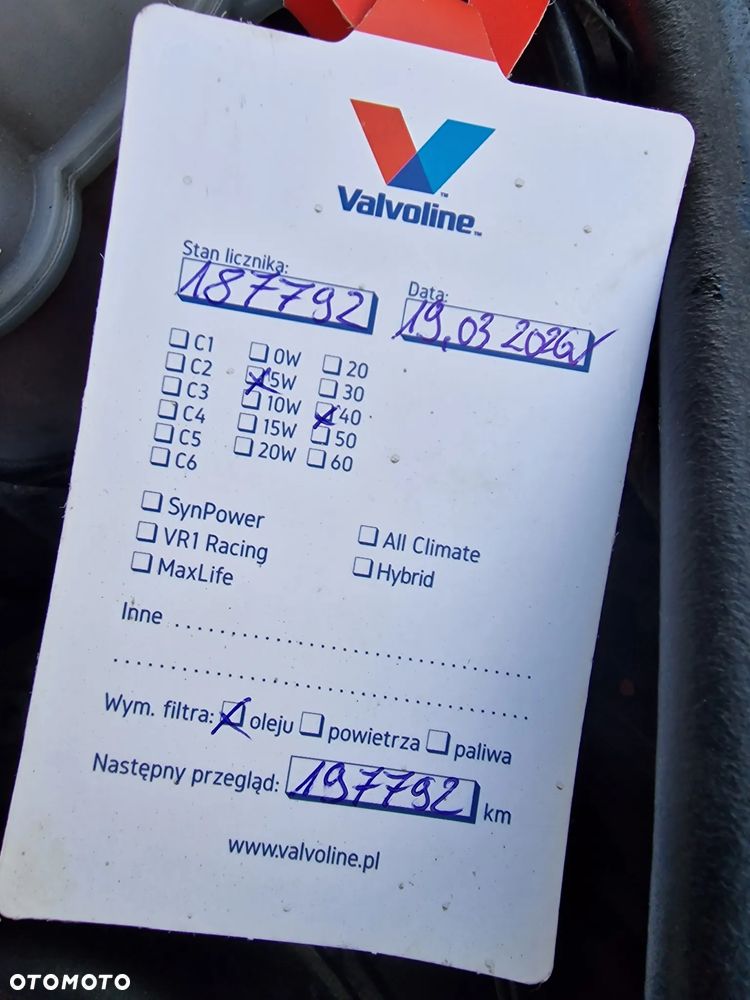 Valvoline™
Stan licznika: Data:
187792 19.03 2026
C1 0W 20
C2 5W 30
C3 10W 40
C4 15W 50
C5 20W 60
C6
SynPower
VR1 Racing All Climate
MaxLife Hybrid
Inne
Wym. filtra: oleju powietrza paliwa
Następny przegląd: 197792 km
www.valvoline.pl
OTOMOTO